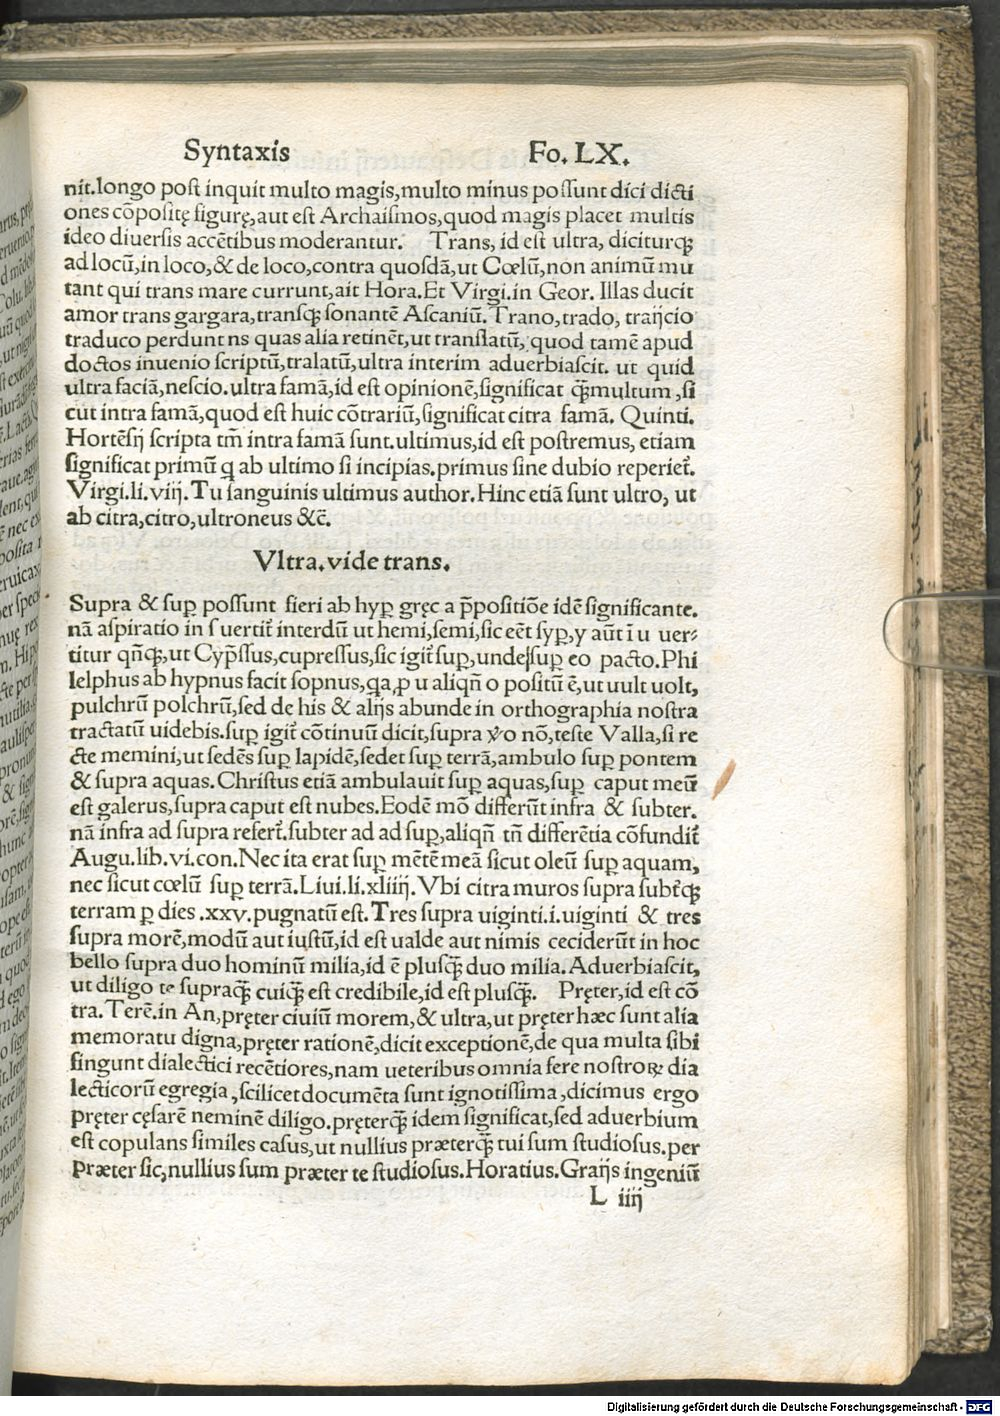 Syntaxis Fo. LX.
nit.longo post inquit multo magis,multo minus possunt dici dicti
ones cōpositę figurę,aut est Archaismos,quod magis placet multis
ideo diuersis accētibus moderantur. Trans, id est ultra, diciturqꝫ
ad locū,in loco,& de loco,contra quosdā,ut Cœlū,non animū mu
tant qui trans mare currunt,ait Hora.Et Virgi.in Geor. Illas ducit
amor trans gargara,transqꝫ sonantē Ascaniū. Trano,trado, traijcio
traduco perdunt ns quas alia retinēt,ut translatū, quod tamē apud
doctos inuenio scriptū,tralatū,ultra interim aduerbiascit. ut quid
ultra faciā,nescio.ultra famā,id est opinionē,significat qꝫ̄multum ,si
cut intra famā,quod est huic cōtrariū,significat citra famā. Quinti.
Hortēsij scripta tm̄ intra famā sunt.ultimus,id est postremus, etiam
significat primū q ab ultimo si incipias.primus sine dubio reperiet᷑.
Virgi.li.viij. Tu sanguinis ultimus author. Hinc etiā sunt ultro, ut
ab citra,citro,ultroneus &c̄.
Vltra.vide trans.
Supra & suꝑ possunt fieri ab hyꝑ gręc a p̄positiōe idē significante.
nā aspiratio in s uertit᷑ interdū ut hemi,semi,sic eēt syꝑ,y aūt ī u uer-
titur qn̄qꝫ,ut Cyp̄ssus,cupressus,sic igit᷑ suꝑ,unde suꝑ eo pacto.Phi
lelphus ab hypnus facit sopnus,qa ꝓ u aliqn̄ o positū ē,ut uult uolt,
pulchrū polchrū,sed de his & alijs abunde in orthographia nostra
tractatū uidebis.suꝑ igit᷑ cōtinuū dicit,supra v̊o nō,teste Valla,si re
cte memini,ut sedēs suꝑ lapidē,sedet suꝑ terrā,ambulo suꝑ pontem
& supra aquas. Christus etiā ambulauit suꝑ aquas,suꝑ caput meū
est galerus,supra caput est nubes.Eodē mō differūt infra & subter.
nā infra ad supra refert᷑.subter ad ad suꝑ,aliqn̄ tn̄ differētia cōfundit᷑
Augu.lib.vi.con.Nec ita erat suꝑ mētē meā sicut oleū suꝑ aquam,
nec sicut cœlū suꝑ terrā.Liui.li.xliiij. Vbi citra muros supra subt᷑qꝫ
terram ꝑ dies .xxv.pugnatū est. Tres supra uiginti.i.uiginti & tres
supra morē,modū aut iustū,id est ualde aut nimis ceciderūt in hoc
bello supra duo hominū milia,id ē plusqꝫ̄ duo milia. Aduerbiascit,
ut diligo te supraqꝫ̄ cuiqꝫ̄ est credibile,id est plusqꝫ̄. Pręter,id est cō
tra. Terē.in An,pręter ciuiū morem,& ultra,ut pręter hæc sunt alia
memoratu digna,pręter rationē,dicit exceptionē,de qua multa sibi
fingunt dialectici recētiores,nam ueteribus omnia fere nostroꝝ dia
lecticorū egregia ,scilicet documēta sunt ignotissima ,dicimus ergo
pręter cęsarē neminē diligo.pręterqꝫ̄ idem significat,sed aduerbium
est copulans similes casus,ut nullius præterqꝫ̄ tui sum studiosus.per
præter sic,nullius sum præter te studiosus. Horatius. Graijs ingeniū
L iiij
Digitalisierung gefördert durch die Deutsche Forschungsgemeinschaft - DFG